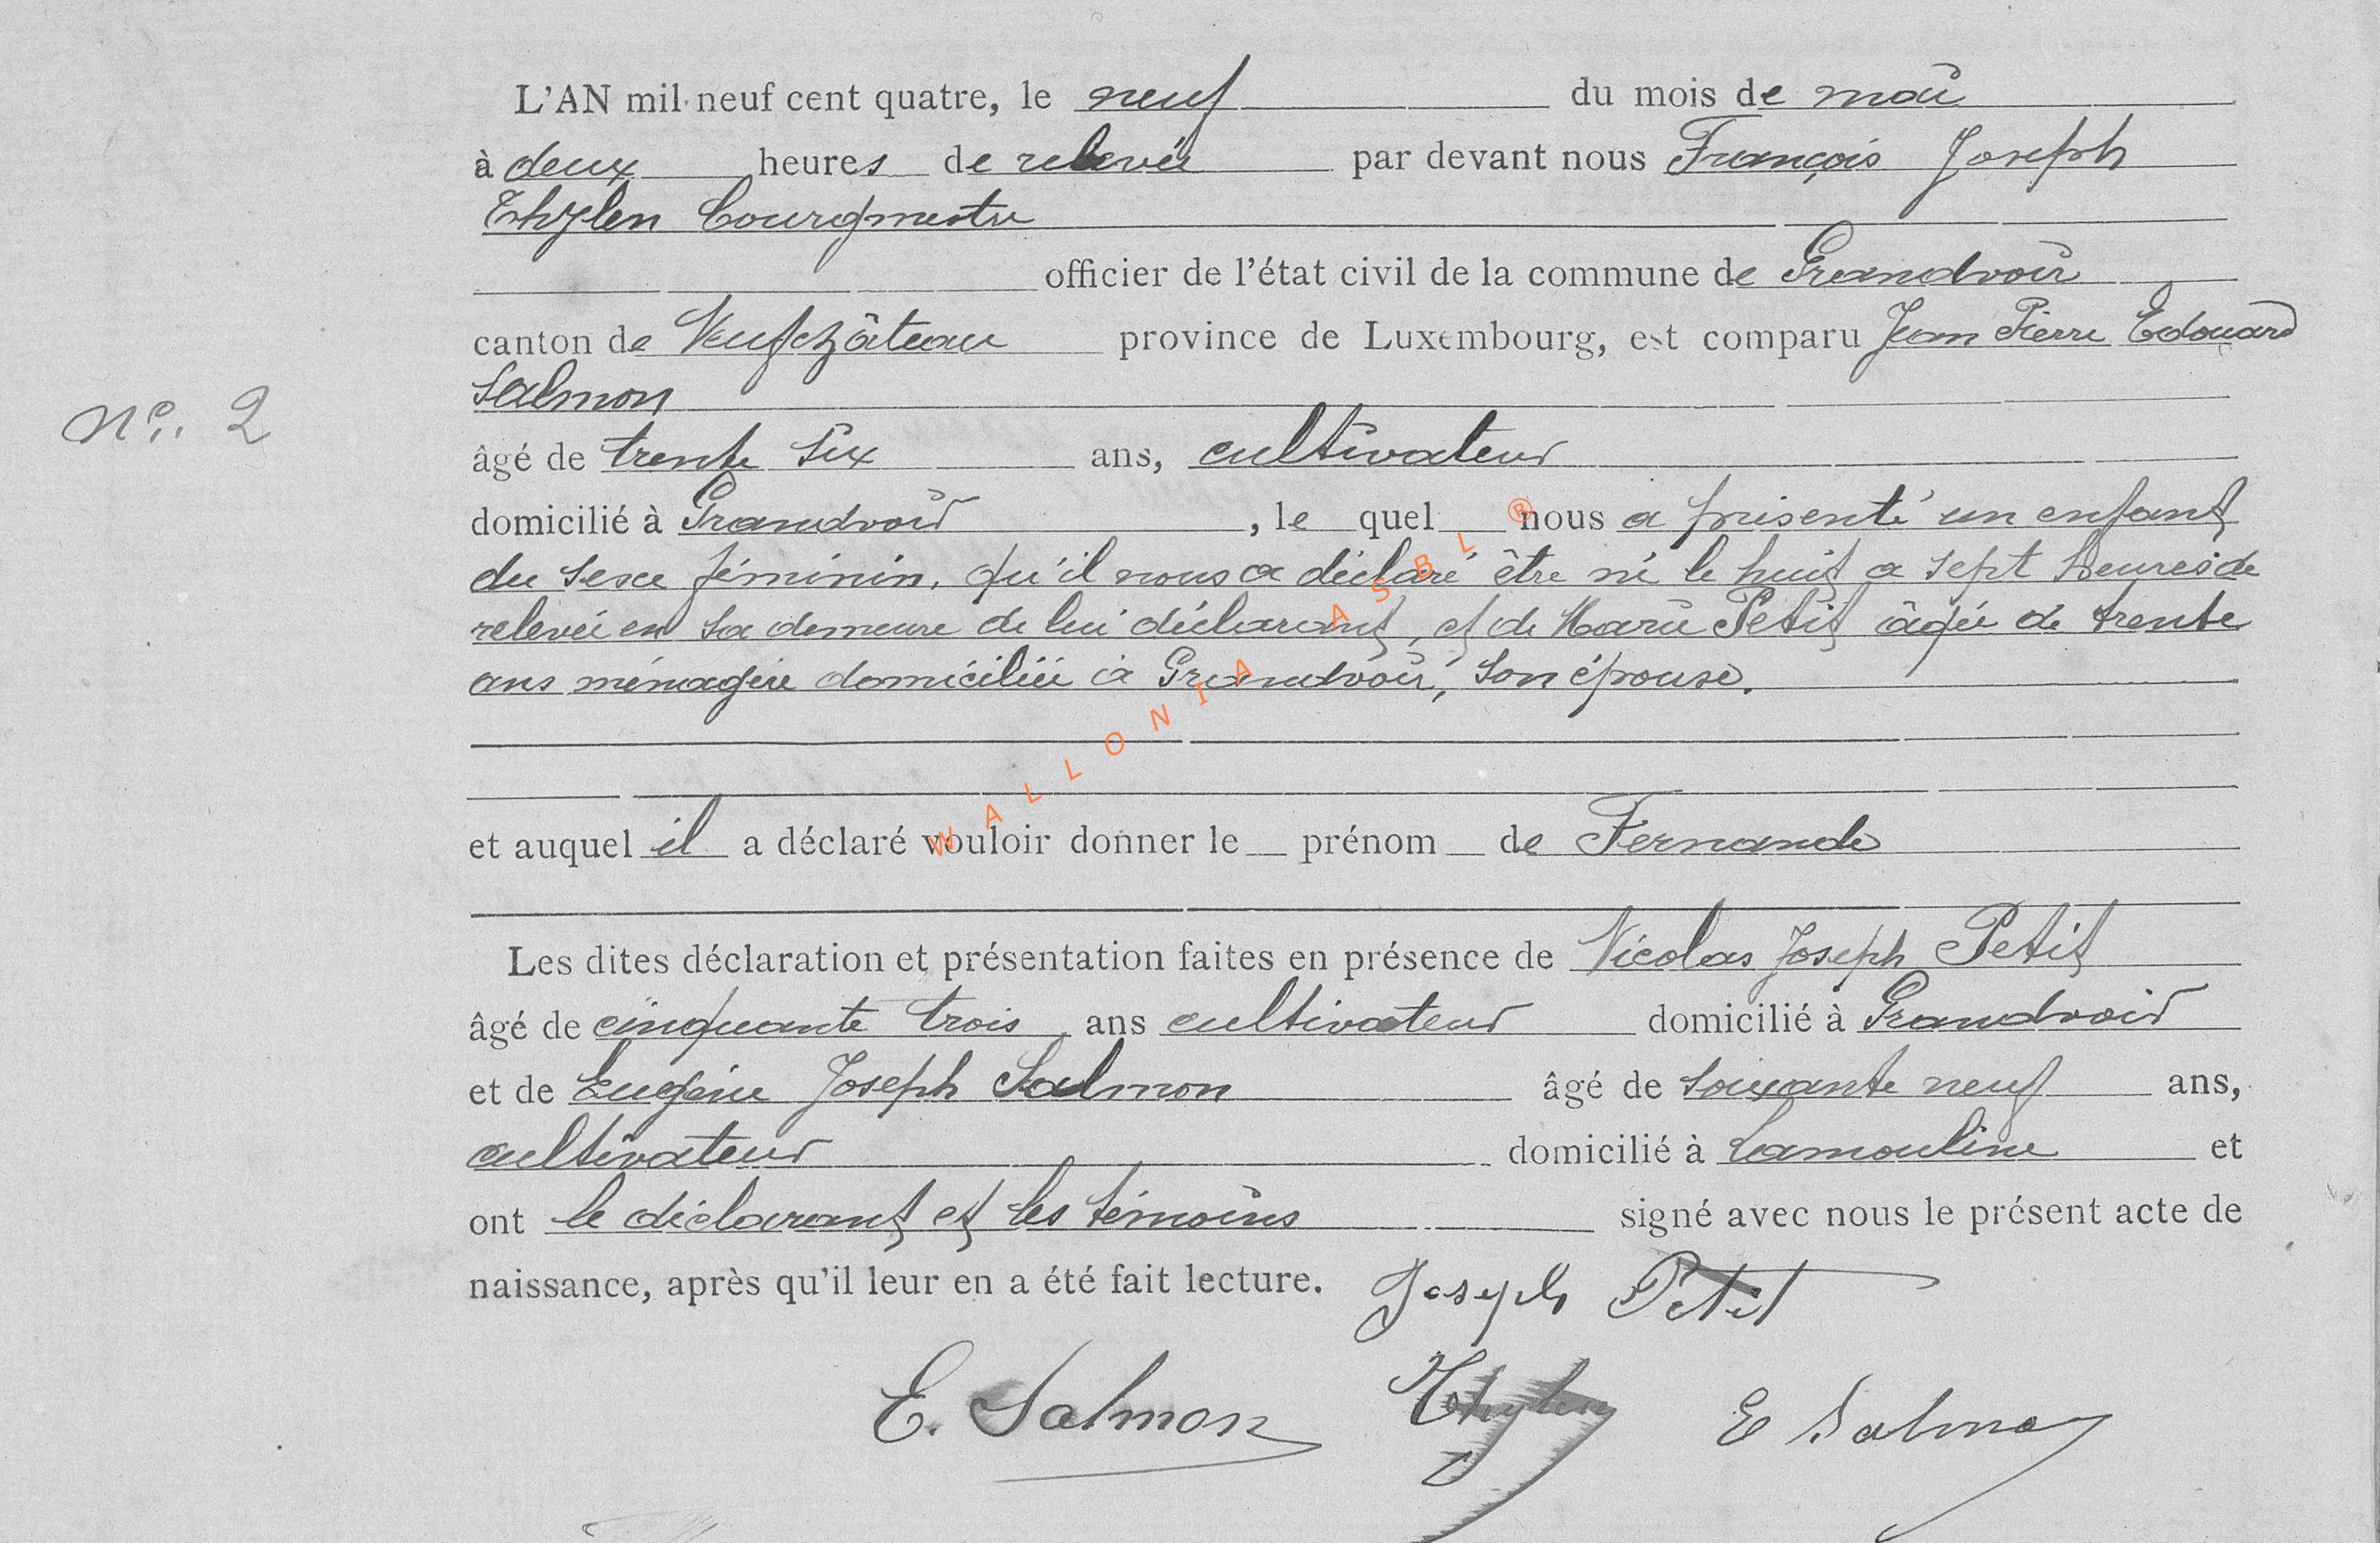 L'AN mil neuf cent quatre, le neuf du mois de mai
à deux heures de relevée par devant nous François Joseph
Thylen bourgmestre
officier de l'état civil de la commune de Grandvoir
canton de Neufchâteau province de Luxembourg, est comparu Jean Pierre Edouard
Salmon
N° 2
âgé de trente six ans, cultivateur
domicilié à Grandvoir, le quel nous a présenté un enfant
du sexe féminin, qu'il nous a déclaré être né le huit a sept heures de
relevée en sa demeure de lui déclarant, et de Marie Petit âgée de trente
ans ménagère domiciliée à Grandvoir, son épouse.
WALLONIA ASBL ®
et auquel il a déclaré vouloir donner le prénom de Fernande
Les dites déclaration et présentation faites en présence de Nicolas Joseph Petit
âgé de cinquante trois ans cultivateur domicilié à Grandvoir
et de Eugène Joseph Salmon âgé de soixante neuf ans,
cultivateur domicilié à Lamouline et
ont le déclarant et les témoins signé avec nous le présent acte de
naissance, après qu'il leur en a été fait lecture. Joseph Petit
E. Salmon Thylen E Salmon